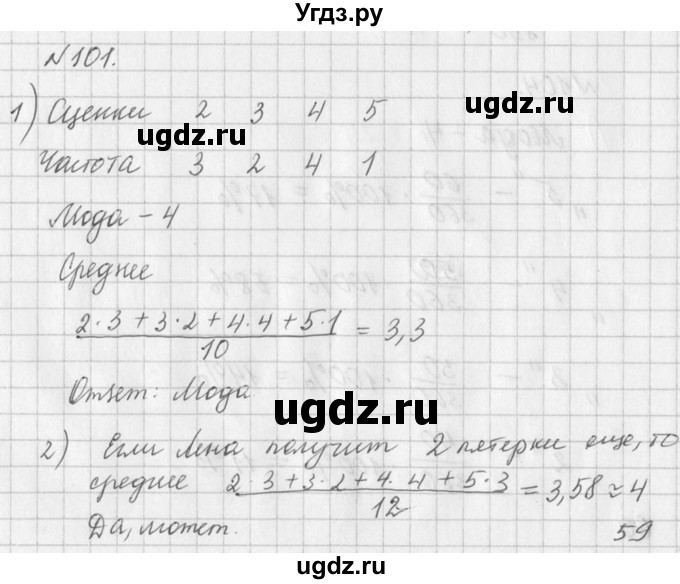 Угдз.ру
N101.
1) Оценки 2 3 4 5
ugdz.ru
Частота 3 2 4 1
ugdz.ru
Мода – 4
Среднее
2·3+3·2+4·4+5·1 / 10 = 3,3
Ответ: Мода
ugdz.ru
2) Если Лена получит 2 пятерки еще, то
среднее 2·3+3·2+4·4+5·3 / 12 = 3,58 ≈ 4
Да, может.
59
ugdz.ru